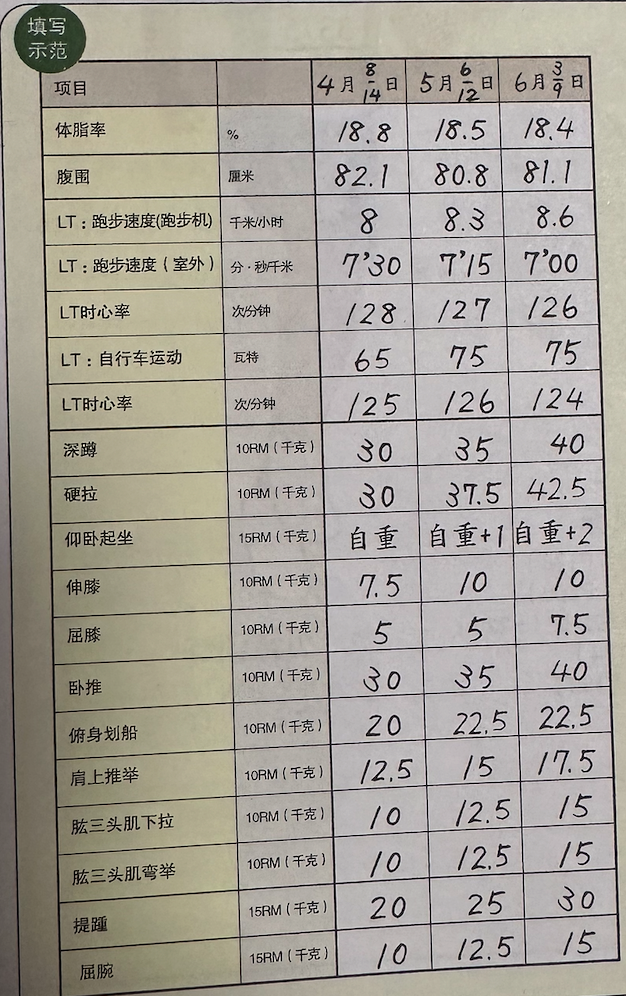 填写
示范
项目 4月8/14日 5月6/12日 6月3/9日
体脂率 % 18.8 18.5 18.4
腹围 厘米 82.1 80.8 81.1
LT：跑步速度(跑步机) 千米/小时 8 8.3 8.6
LT：跑步速度（室外） 分·秒/千米 7'30 7'15 7'00
LT时心率 次/分钟 128 127 126
LT：自行车运动 瓦特 65 75 75
LT时心率 次/分钟 125 126 124
深蹲 10RM（千克） 30 35 40
硬拉 10RM（千克） 30 37.5 42.5
仰卧起坐 15RM（千克） 自重 自重+1 自重+2
伸膝 10RM（千克） 7.5 10 10
屈膝 10RM（千克） 5 5 7.5
卧推 10RM（千克） 30 35 40
俯身划船 10RM（千克） 20 22.5 22.5
肩上推举 10RM（千克） 12.5 15 17.5
肱三头肌下拉 10RM（千克） 10 12.5 15
肱三头肌弯举 10RM（千克） 10 12.5 15
提踵 15RM（千克） 20 25 30
屈腕 15RM（千克） 10 12.5 15